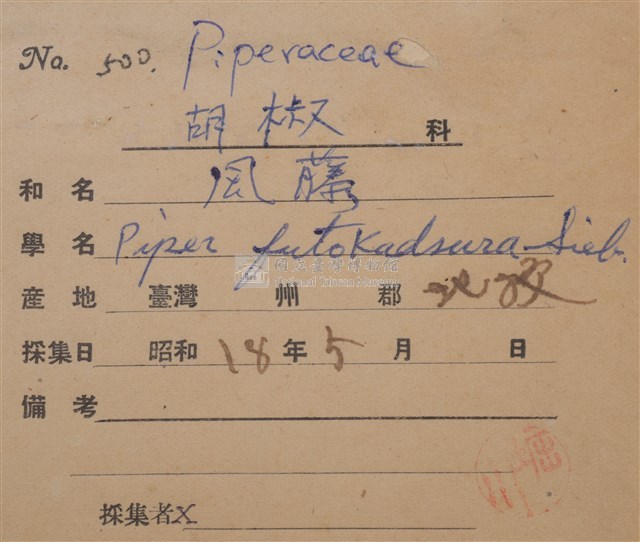 No. 500. Piperaceae
胡椒 科
和名 風藤
學名 Piper futokadsura Sieb.
國立臺灣博物館
National Taiwan Museum
産地 臺灣 州 郡
採集日 昭和18年5月 日
備考
採集者X